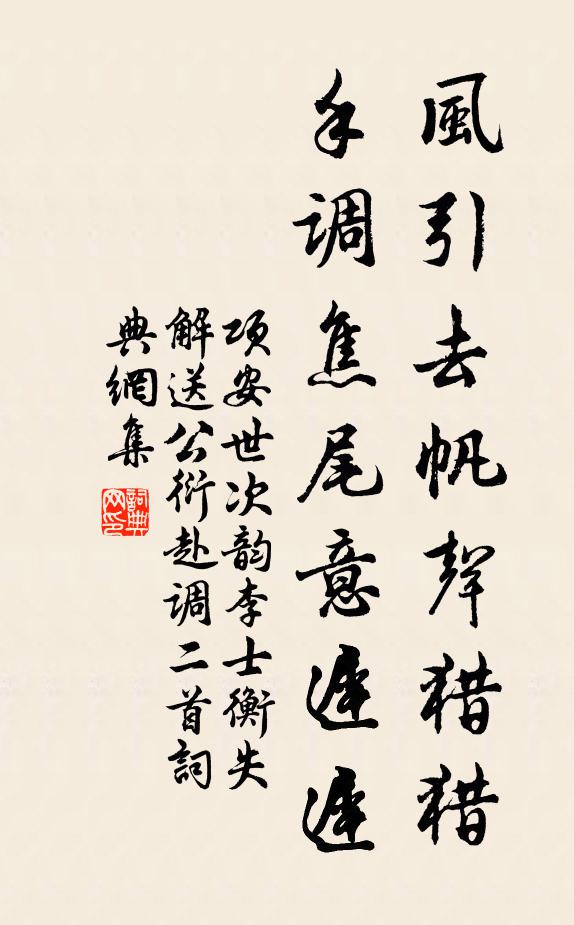 風引去帆聲猎猎
手调焦尾意遲遲
项安世次韵李士衡失
解送公衍赴调二首詞
典網集
詞典网印